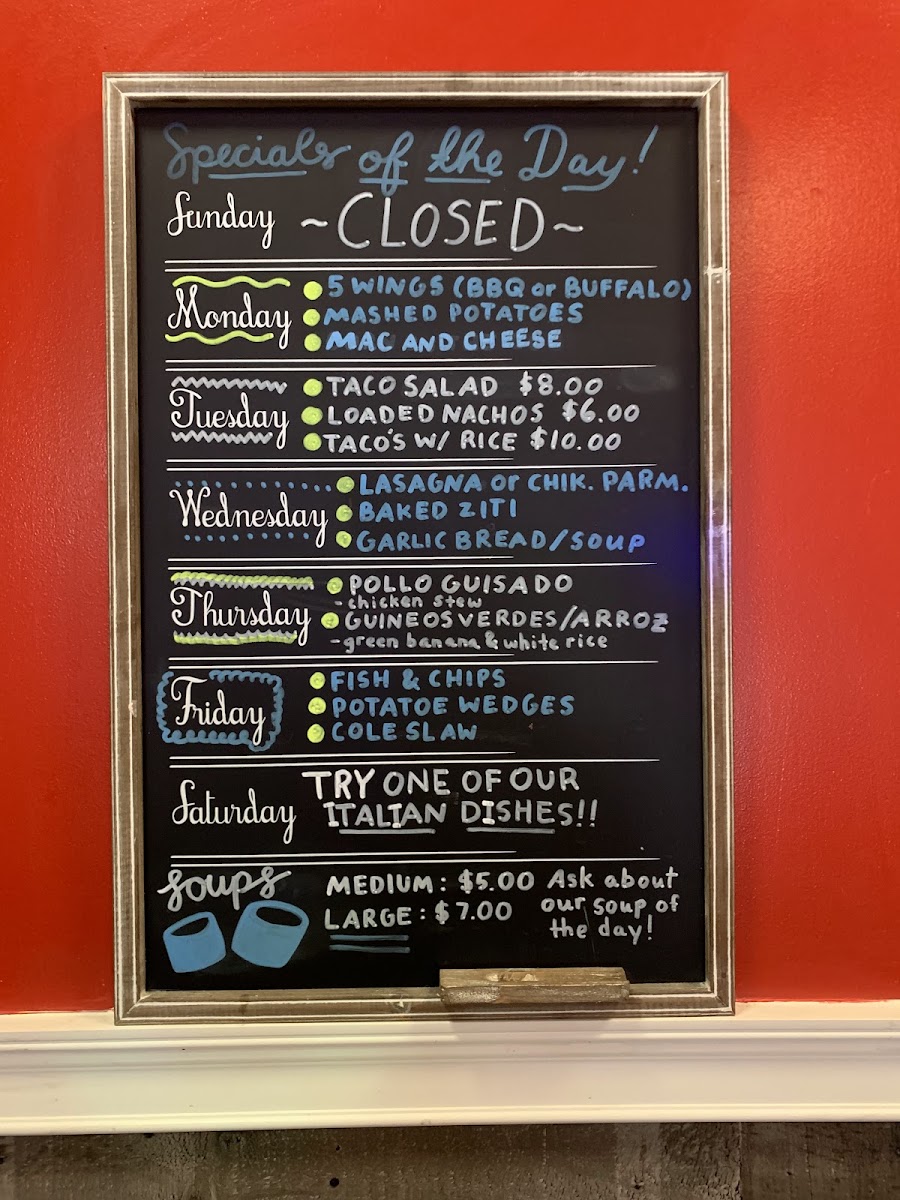 Specials of the Day!
Sunday ~CLOSED~
Monday
5 WINGS (BBQ or BUFFALO)
MASHED POTATOES
MAC AND CHEESE
Tuesday
TACO SALAD $8.00
LOADED NACHOS $6.00
TACO'S W/ RICE $10.00
Wednesday
LASAGNA or CHIK. PARM.
BAKED ZITI
GARLIC BREAD/SOUP
Thursday
POLLO GUISADO
-chicken stew
GUINEOS VERDES/ARROZ
-green banana & white rice
Friday
FISH & CHIPS
POTATOE WEDGES
COLE SLAW
Saturday
TRY ONE OF OUR
ITALIAN DISHES!!
Soups
MEDIUM: $5.00
LARGE: $7.00
Ask about
our soup of
the day!